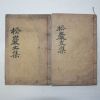 松巖文集
松巖文集